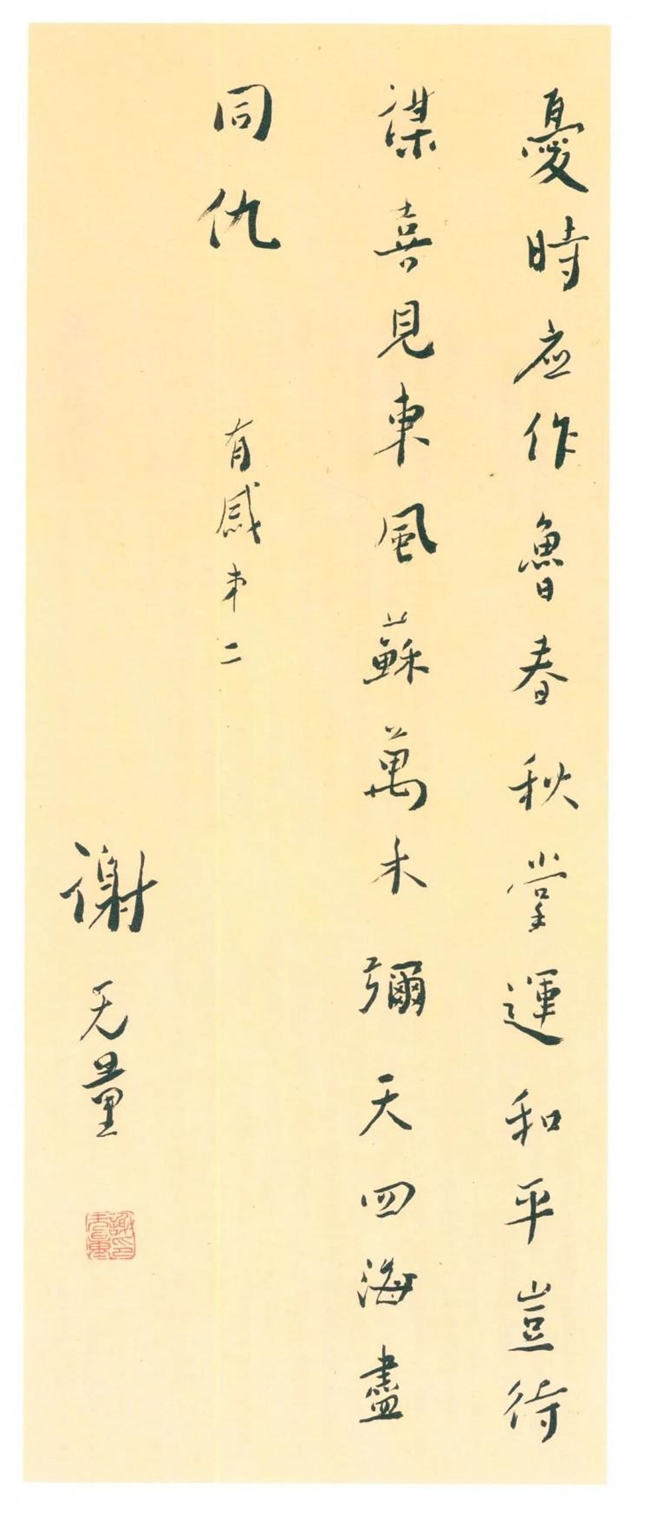 憂時应作魯春秋掌運和平豈待
謀喜見東風蘇萬木彌天四海盡
同仇
有感第二
謝无量
謝印无量